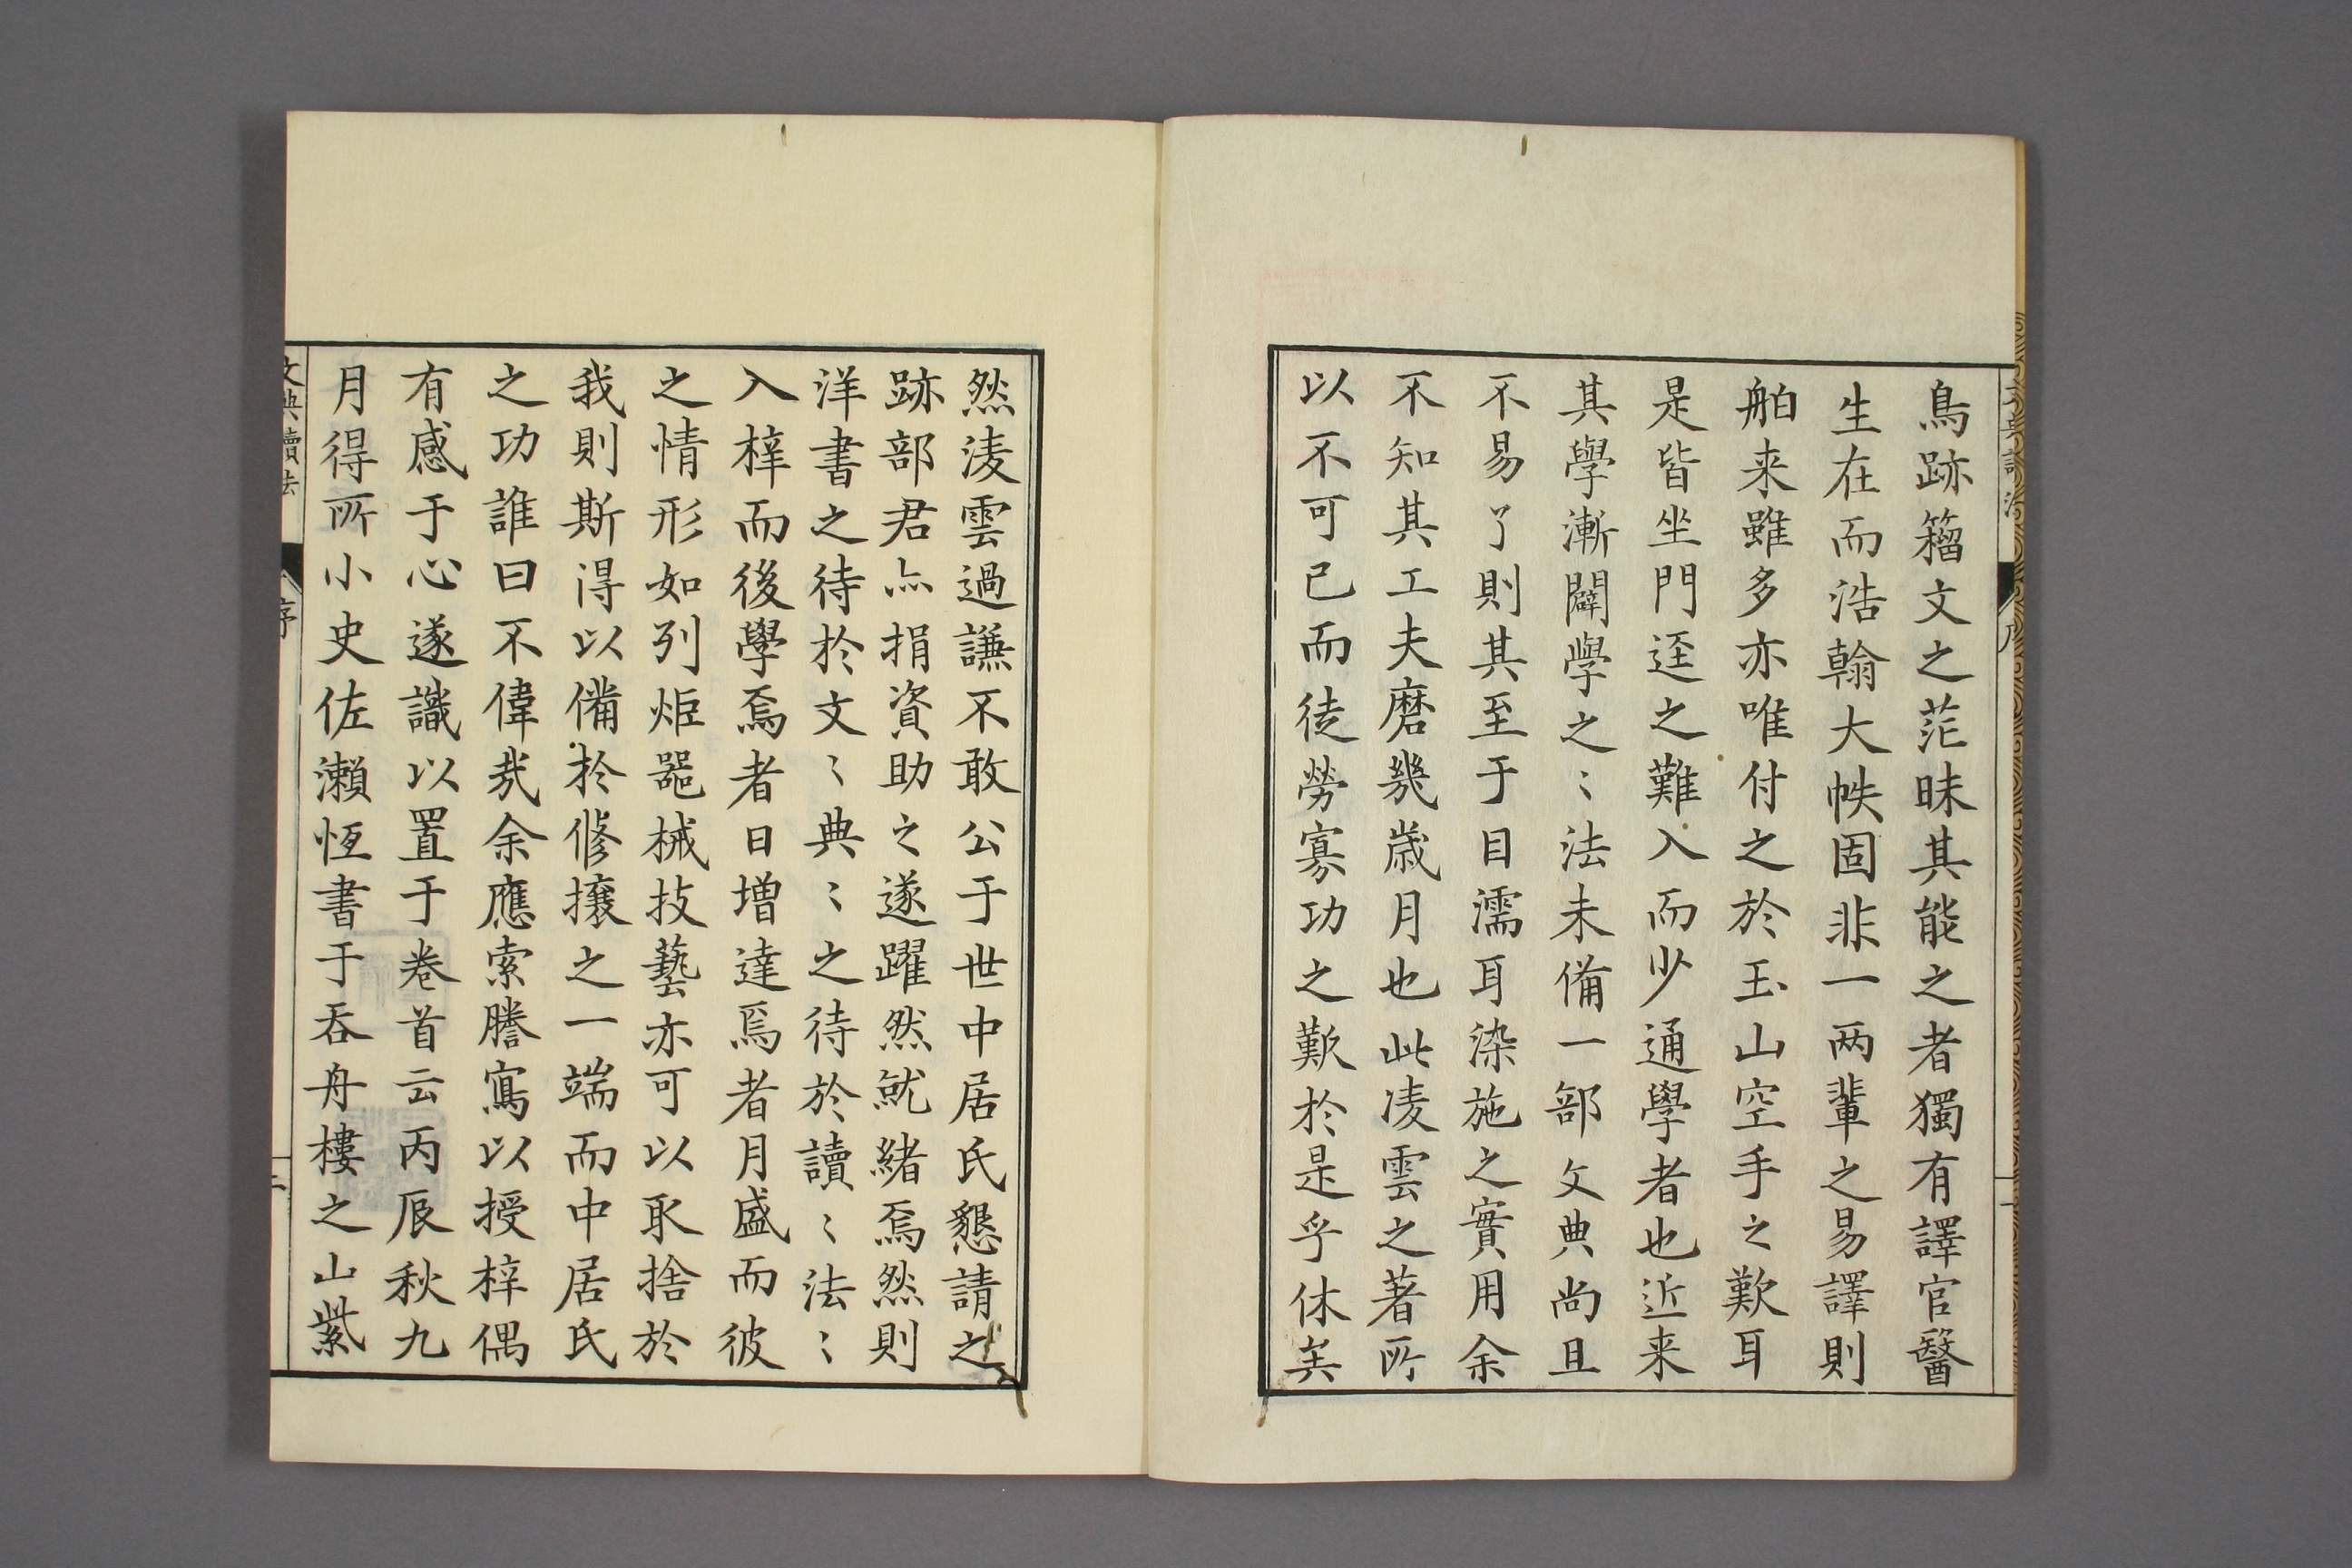 鳥跡籀文之茫昧其能之者獨有譯官醫
生在而浩翰大帙固非一两輩之易譯則
舶来雖多亦唯付之於玉山空手之歎耳
是皆坐門逕之難入而少通學者也近来
其學漸闢學之〻法未備一部文典尚且
不易了則其至于目濡耳染施之實用余
不知其工夫磨幾歲月也此凌雲之著所
以不可已而徒勞寡功之歎於是乎休矣
然淩雲過謙不敢公于世中居氏懇請之
跡部君亦捐資助之遂躍然就緒焉然則
洋書之待於文〻典〻之待於讀〻法〻
入梓而後學焉者日增達焉者月盛而彼
之情形如列炬噐械技藝亦可以取捨於
我則斯得以備於修攘之一端而中居氏
之功誰曰不偉哉余應索謄寫以授梓偶
有感于心遂識以置于卷首云丙辰秋九
月得所小史佐瀨恆書于吞舟樓之山紫
文典讀法
序